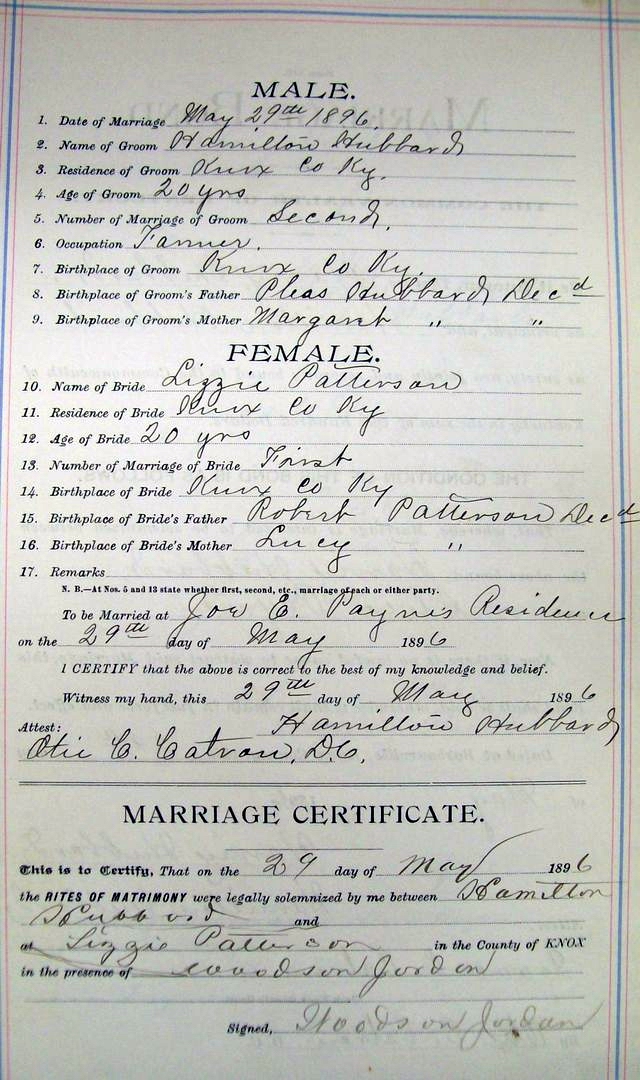 MALE.
1. Date of Marriage May 29th 1896.
2. Name of Groom Hamilton Hubbard
3. Residence of Groom Knox Co Ky.
4. Age of Groom 20 yrs
5. Number of Marriage of Groom Second,
6. Occupation Farmer.
7. Birthplace of Groom Knox Co Ky.
8. Birthplace of Groom's Father Pleas Hubbard Decd
9. Birthplace of Groom's Mother Margaret " "
FEMALE.
10. Name of Bride Lizzie Patterson
11. Residence of Bride Knox Co Ky
12. Age of Bride 20 yrs
13. Number of Marriage of Bride First
14. Birthplace of Bride Knox Co Ky
15. Birthplace of Bride's Father Robert Patterson Decd
16. Birthplace of Bride's Mother Lucy "
17. Remarks
N. B.—At Nos. 5 and 13 state whether first, second, etc., marriage of each or either party.
To be Married at Joe E. Payne's Residence
on the 29th day of May 1896
I CERTIFY that the above is correct to the best of my knowledge and belief.
Witness my hand, this 29th day of May 1896
Hamilton Hubbard
Attest:
Otie C. Catron, D.C.
MARRIAGE CERTIFICATE.
This is to Certify, That on the 29 day of May 1896
the RITES OF MATRIMONY were legally solemnized by me between Hamilton
Hubbard and
at Lizzie Patterson in the County of KNOX
in the presence of Woodson Jordon
Signed, Woodson Jordan